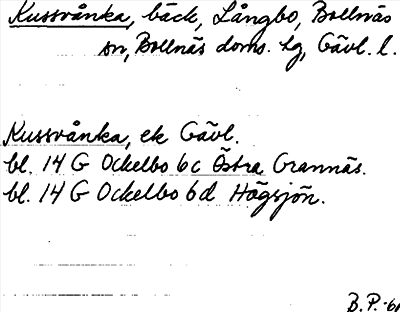 Kussvånka, bäck, Långbo, Bollnäs
sn, Bollnäs doms. lg, Gävl. l.
Kussvånka, ek Gävl.
bl. 14 G Ockelbo 6c Östra Grannäs.
bl. 14 G Ockelbo 6d Högsjön.
B.P.